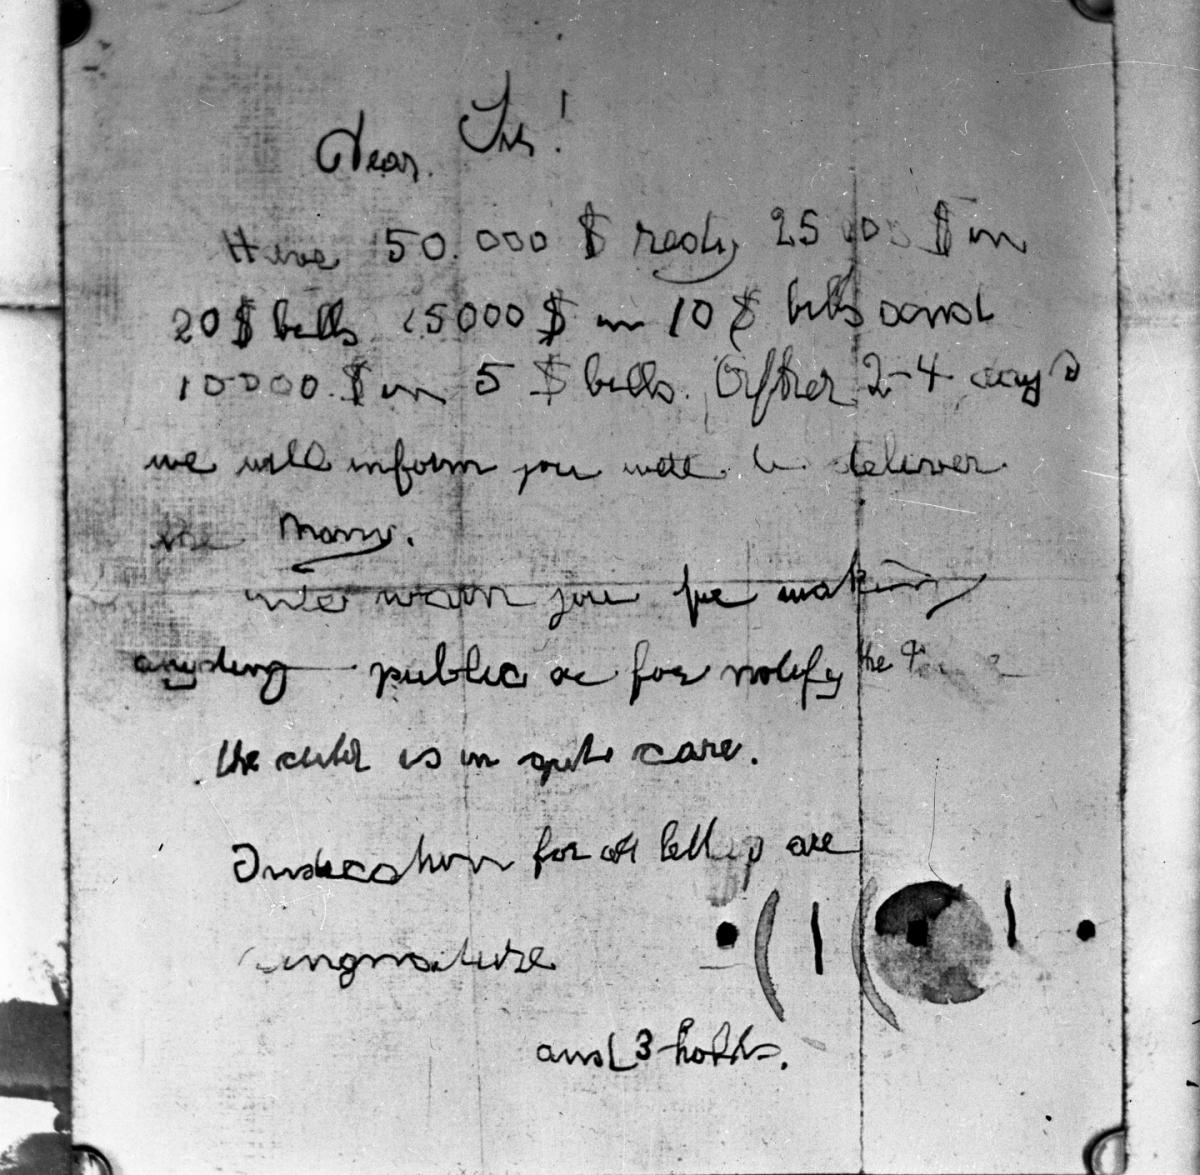 Dear Sir!
Have 50.000 $ redy 25000 $ in
20 $ bills 15000 $ in 10 $ bills and
10000 $ in 5 $ bills. After 2-4 days
we will inform you were to deliver
the Mony.
We warn you for making
anyding public or for notify the Police
the child is in gute care.
Indication for all letters are
singnature
and 3 holds.